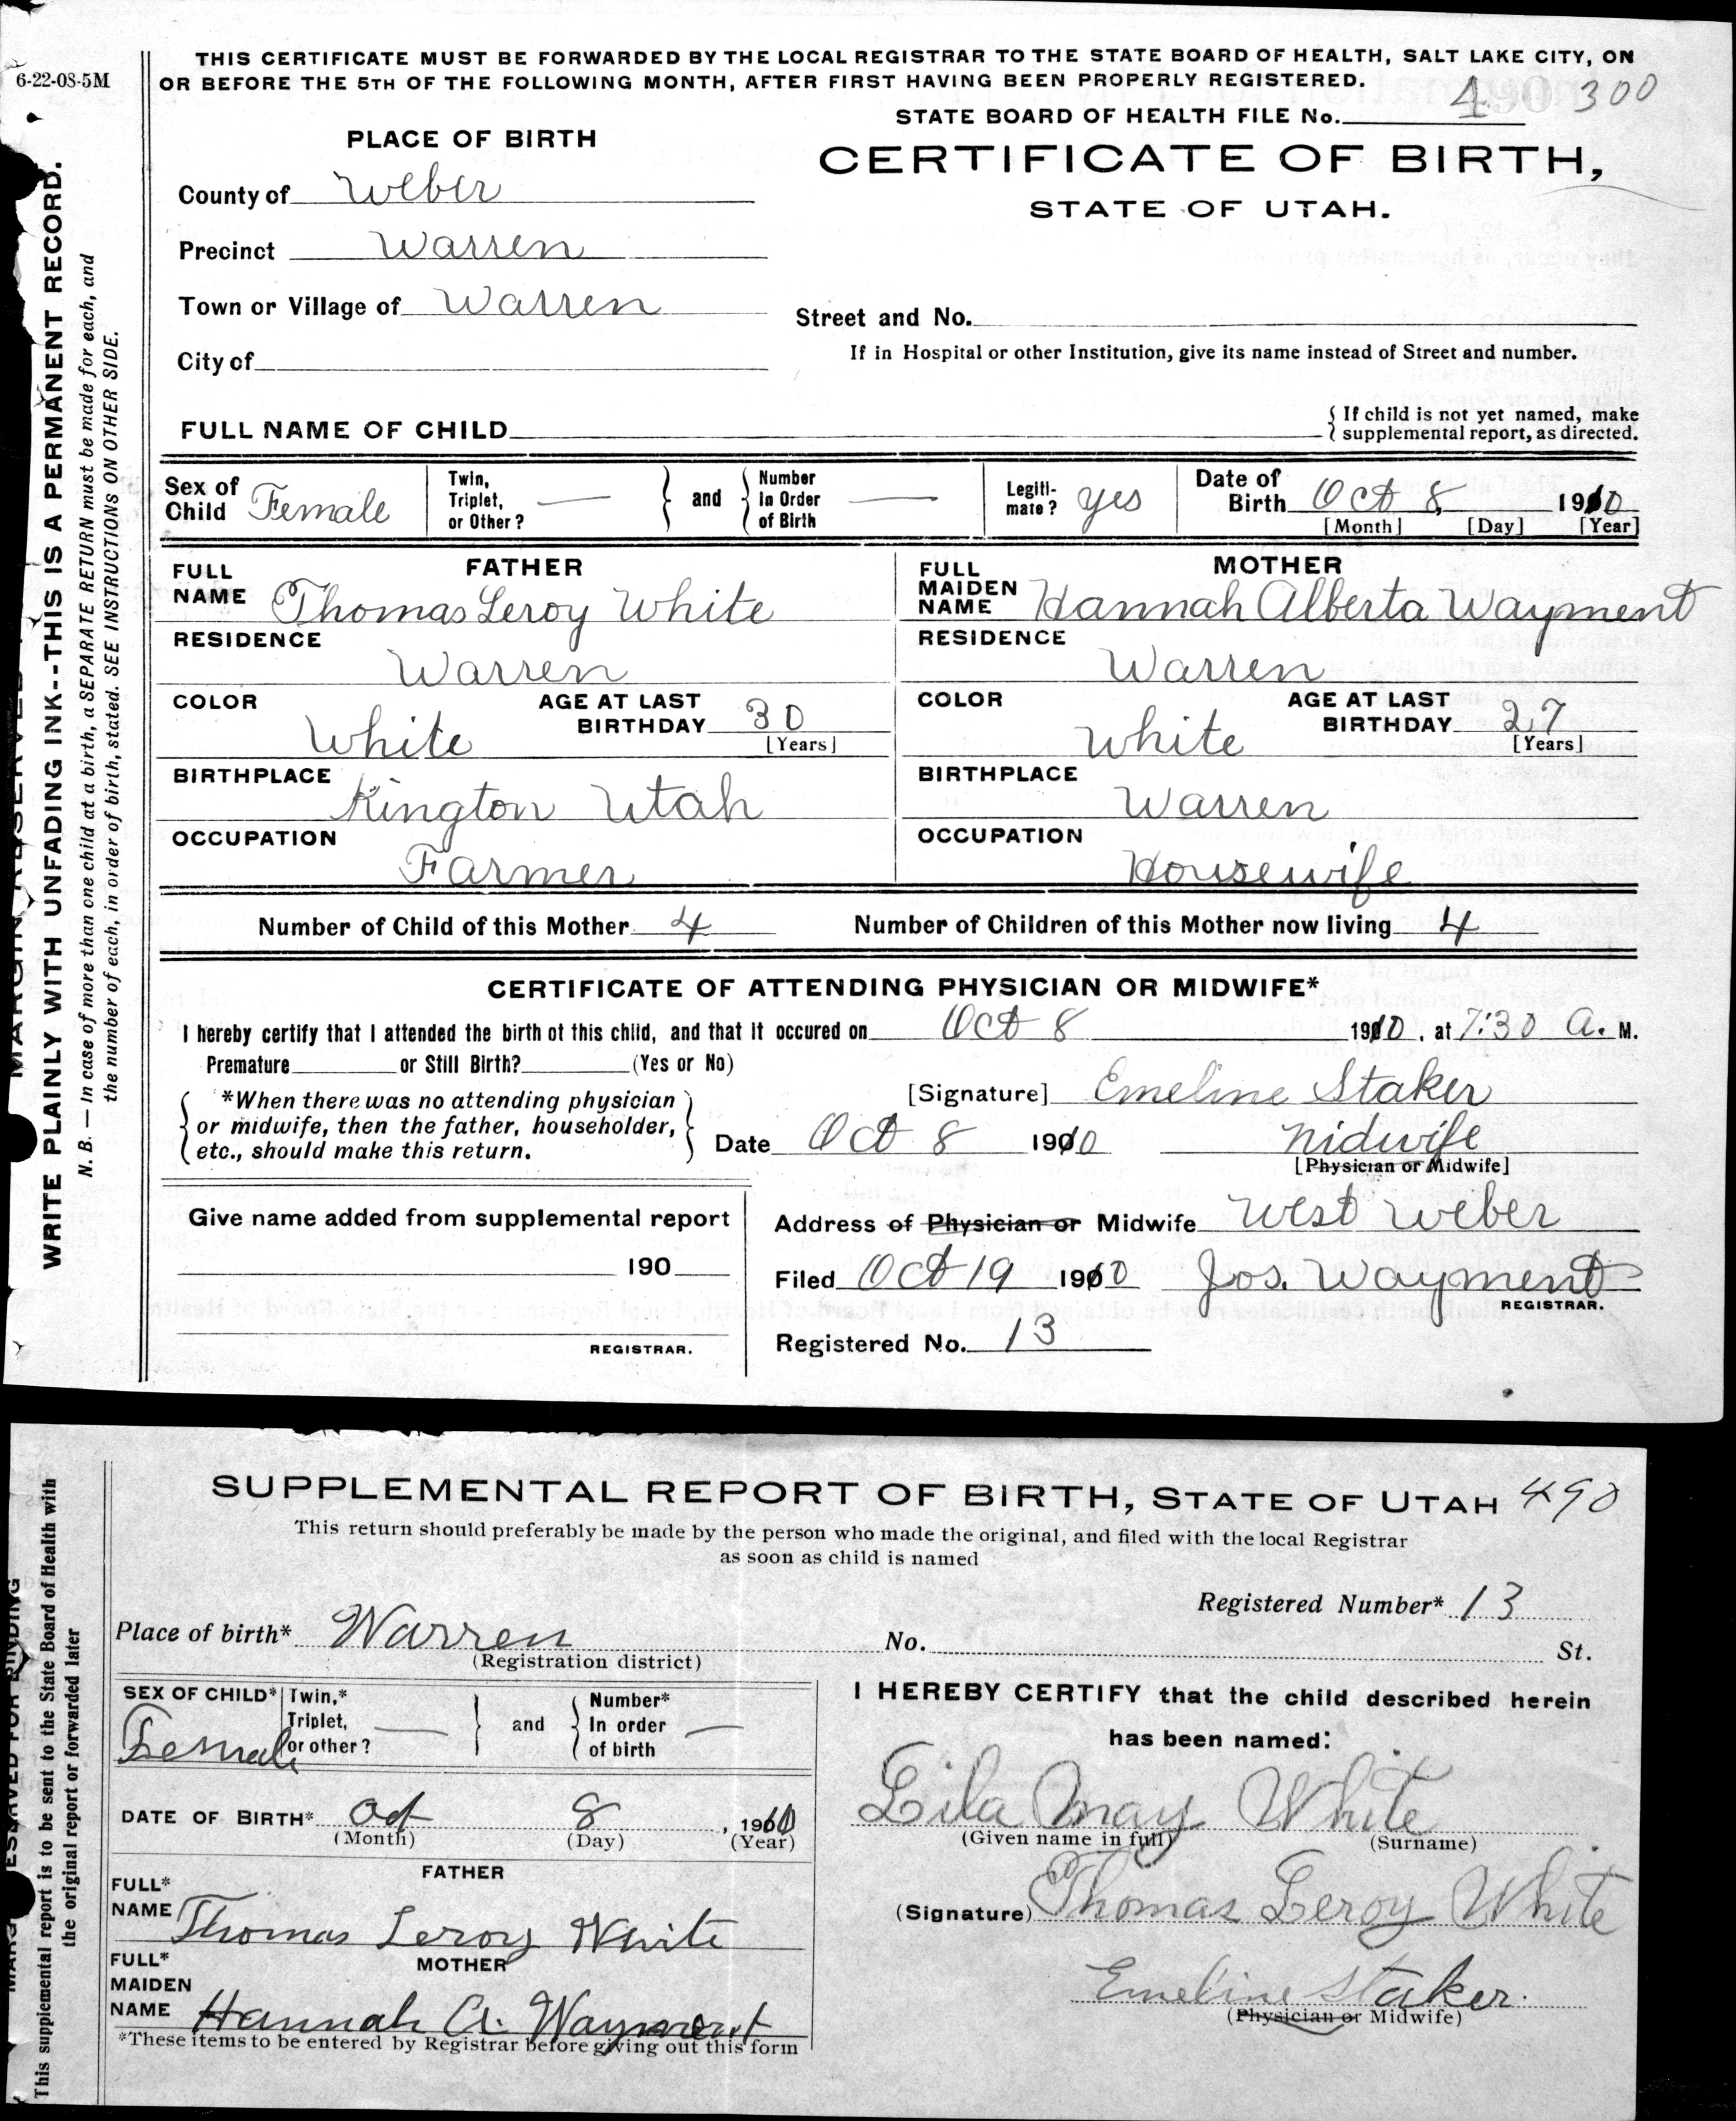 6-22-08-5M
THIS CERTIFICATE MUST BE FORWARDED BY THE LOCAL REGISTRAR TO THE STATE BOARD OF HEALTH, SALT LAKE CITY, ON
OR BEFORE THE 5TH OF THE FOLLOWING MONTH, AFTER FIRST HAVING BEEN PROPERLY REGISTERED.
300
STATE BOARD OF HEALTH FILE No. 490
PLACE OF BIRTH
CERTIFICATE OF BIRTH,
STATE OF UTAH.
County of Weber
Precinct Warren
Town or Village of Warren
Street and No.
City of
If in Hospital or other Institution, give its name instead of Street and number.
FULL NAME OF CHILD
{ If child is not yet named, make
supplemental report, as directed.
Sex of Child Female
Twin, Triplet, or Other? —
} and {
Number In Order of Birth —
Legiti-mate? yes
Date of Birth Oct 8 1910
[Month] [Day] [Year]
FATHER
FULL NAME Thomas Leroy White
RESIDENCE
Warren
COLOR White
AGE AT LAST BIRTHDAY 30
[Years]
BIRTHPLACE
Kington Utah
OCCUPATION
Farmer
MOTHER
FULL MAIDEN NAME Hannah Alberta Wayment
RESIDENCE
Warren
COLOR White
AGE AT LAST BIRTHDAY 27
[Years]
BIRTHPLACE
Warren
OCCUPATION
Housewife
Number of Child of this Mother 4 Number of Children of this Mother now living 4
CERTIFICATE OF ATTENDING PHYSICIAN OR MIDWIFE*
I hereby certify that I attended the birth of this child, and that it occured on Oct 8 1910, at 7:30 A. M.
Premature or Still Birth? (Yes or No)
*When there was no attending physician
or midwife, then the father, householder,
etc., should make this return.
[Signature] Emeline Staker
Date Oct 8 1910 Midwife
[Physician or Midwife]
Give name added from supplemental report
190
REGISTRAR.
Address of Physician or Midwife West Weber
Filed Oct 19 1910 Jos. Wayment
REGISTRAR.
Registered No. 13
WRITE PLAINLY WITH UNFADING INK--THIS IS A PERMANENT RECORD.
N. B. — In case of more than one child at a birth, a SEPARATE RETURN must be made for each, and
the number of each, in order of birth, stated. SEE INSTRUCTIONS ON OTHER SIDE.
SUPPLEMENTAL REPORT OF BIRTH, STATE OF UTAH 490
This return should preferably be made by the person who made the original, and filed with the local Registrar
as soon as child is named
Registered Number* 13
Place of birth* Warren No. St.
(Registration district)
SEX OF CHILD* Female
Twin,* Triplet, or other? —
} and {
Number* In order of birth —
DATE OF BIRTH* Oct 8, 1910
(Month) (Day) (Year)
FATHER
FULL* NAME Thomas Leroy White
MOTHER
FULL* MAIDEN NAME Hannah A. Wayment
*These items to be entered by Registrar before giving out this form
I HEREBY CERTIFY that the child described herein
has been named:
Lila May White
(Given name in full) (Surname)
(Signature) Thomas Leroy White
Emeline Staker.
(Physician or Midwife)
This supplemental report is to be sent to the State Board of Health with
the original report or forwarded later